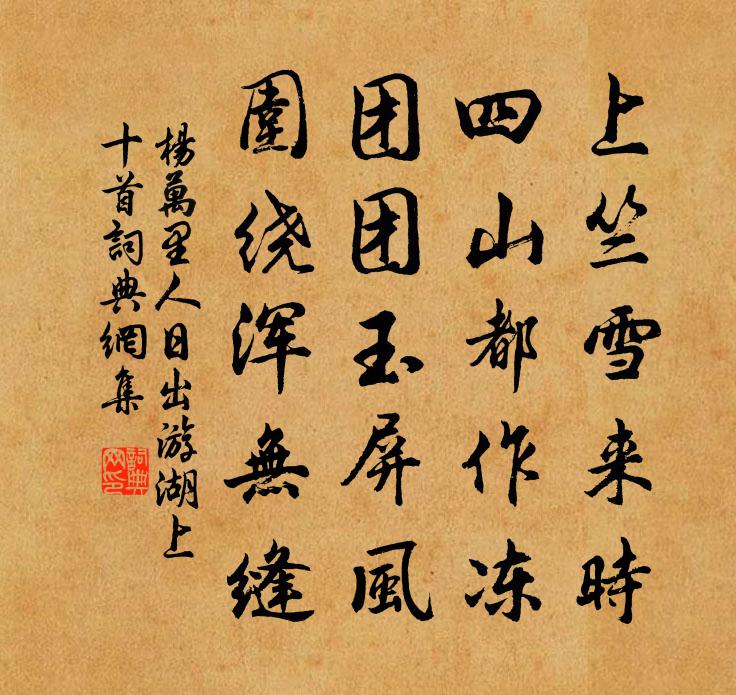 上竺雪来時
四山都作冻
团团玉屏風
圍绕浑無縫
楊萬里人日出游湖上
十首詞典網集
詞典網印